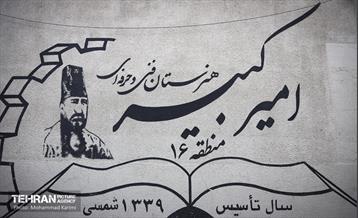 هنرستان فنی و حرفه ای
امیرکبیر
منطقه ۱۶
سال تأسیس ۱۳۳۹ شمسی
TEHRAN PICTURE AGENCY
Photo: Mohammad Karimi